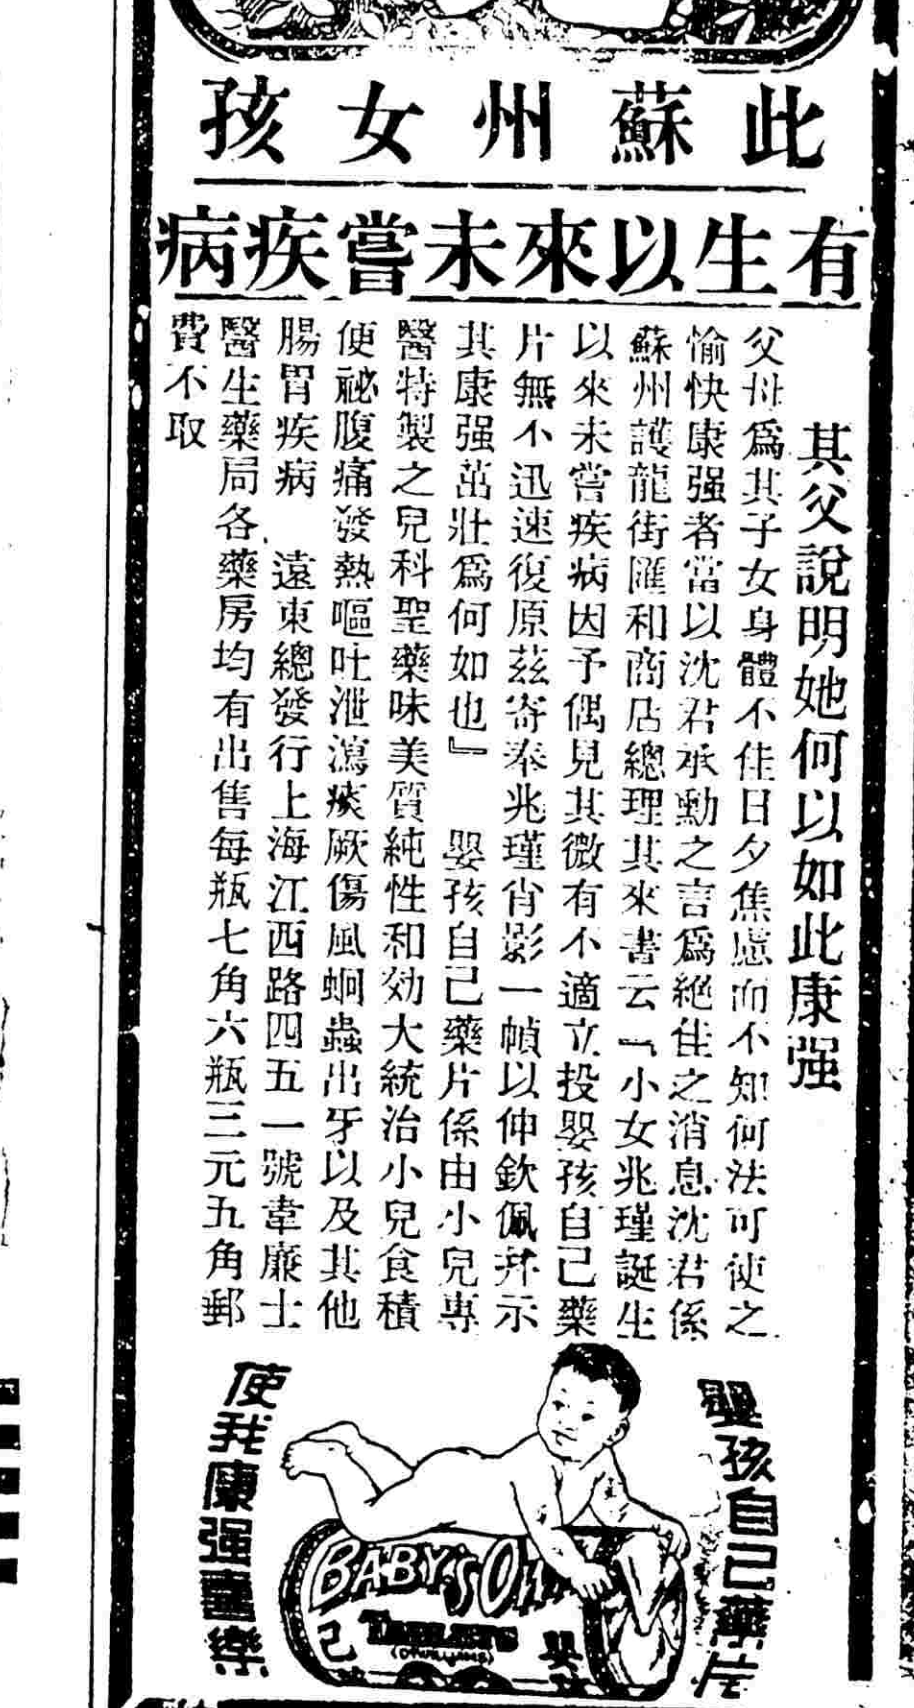 此蘇州女孩
有生以來未嘗疾病
其父說明她何以如此康强
父母爲其子女身體不佳日夕焦慮而不知何法可使之
愉快康强者當以沈君承勳之言爲絕佳之消息沈君係
蘇州護龍街匯和商店總理其來書云『小女兆瑾誕生
以來未嘗疾病因予偶見其微有不適立投嬰孩自己藥
片無不迅速復原茲寄奉兆瑾肖影一幀以伸欽佩幷示
其康强茁壯爲何如也』 嬰孩自己藥片係由小兒專
醫特製之兒科聖藥味美質純性和効大統治小兒食積
便祕腹痛發熱嘔吐泄瀉痰厥傷風蛔蟲出牙以及其他
腸胃疾病 遠東總發行上海江西路四五一號韋廉士
醫生藥局各藥房均有出售每瓶七角六瓶三元五角郵
費不取
嬰孩自己藥片
使我康强喜樂
BABY'S OWN
TABLETS
(DR WILLIAMS)
己 嬰